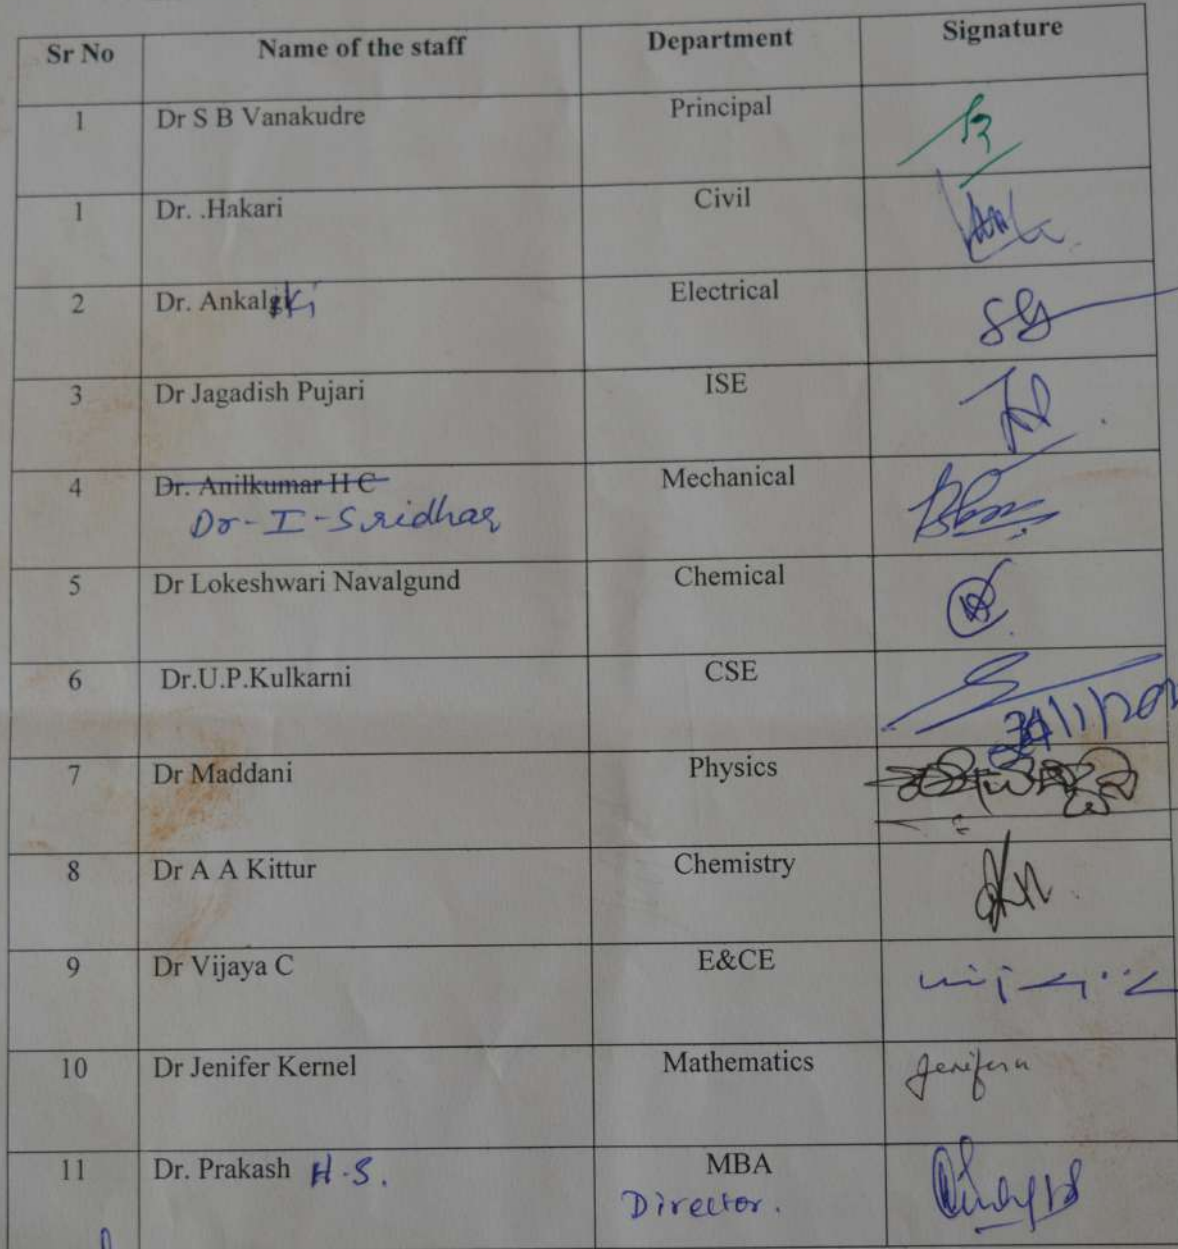 Sr No Name of the staff Department Signature
1 Dr S B Vanakudre Principal
1 Dr. .Hakari Civil
2 Dr. Ankalgki Electrical
3 Dr Jagadish Pujari ISE
4 Dr. Anilkumar H C Mechanical
Dr-I-Sridhar
5 Dr Lokeshwari Navalgund Chemical
6 Dr.U.P.Kulkarni CSE
7 Dr Maddani Physics
8 Dr A A Kittur Chemistry
9 Dr Vijaya C E&CE
10 Dr Jenifer Kernel Mathematics
11 Dr. Prakash H.S. MBA
Director.